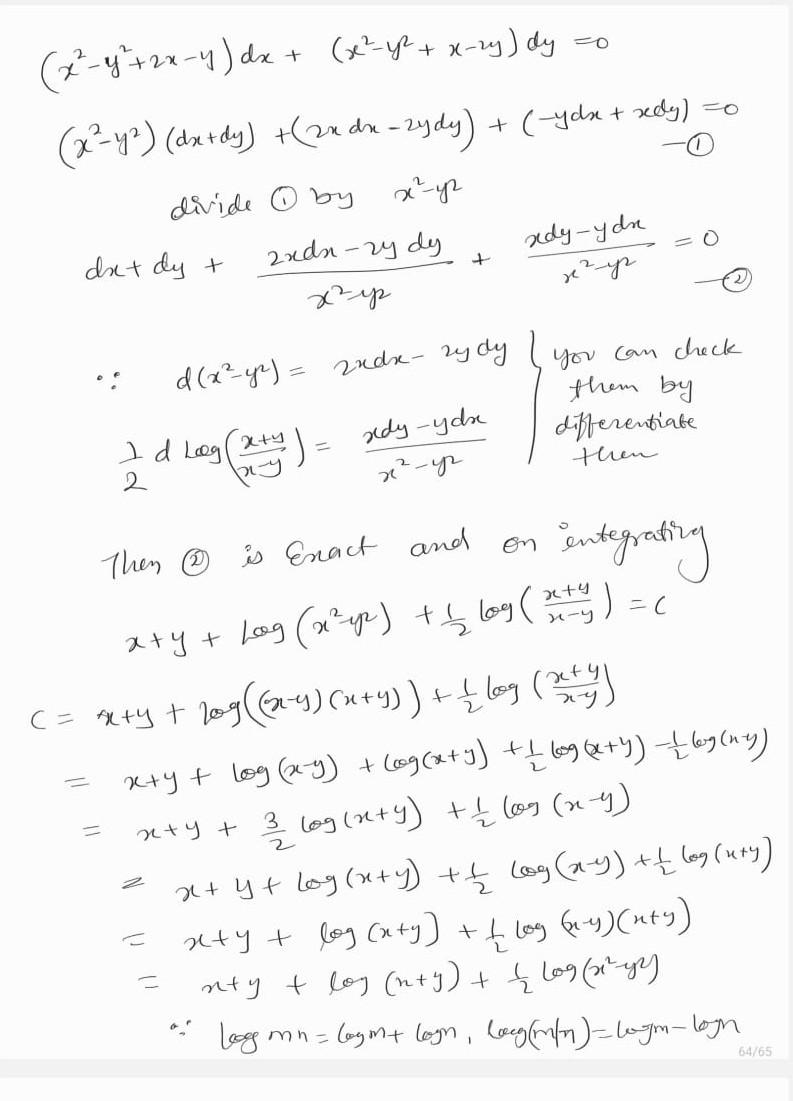 (x²-y²+2x-y)dx + (x²-y²+x-2y)dy =0
(x²-y²)(dx+dy) +(2xdx-2ydy) + (-ydx+xdy) =0 —①
divide ① by x²-y²
dx+dy + (2xdx-2ydy)/(x²-y²) + (xdy-ydx)/(x²-y²) = 0 —②
∵ d(x²-y²) = 2xdx-2ydy } you can check
them by
1/2 d Log((x+y)/(x-y)) = (xdy-ydx)/(x²-y²) differentiate
then
Then ② is Exact and on integrating
x+y + Log(x²-y²) + 1/2 log((x+y)/(x-y)) = C
C = x+y + log((x-y)(x+y)) + 1/2 log((x+y)/(x-y))
= x+y + log(x-y) + log(x+y) + 1/2 log(x+y) - 1/2 log(x-y)
= x+y + 3/2 log(x+y) + 1/2 log(x-y)
= x+y + log(x+y) + 1/2 log(x-y) + 1/2 log(x+y)
= x+y + log(x+y) + 1/2 log(x-y)(x+y)
= x+y + log(x+y) + 1/2 log(x²-y²)
∵ log mn = logm + logn, log(m/n) = logm - logn
64/65